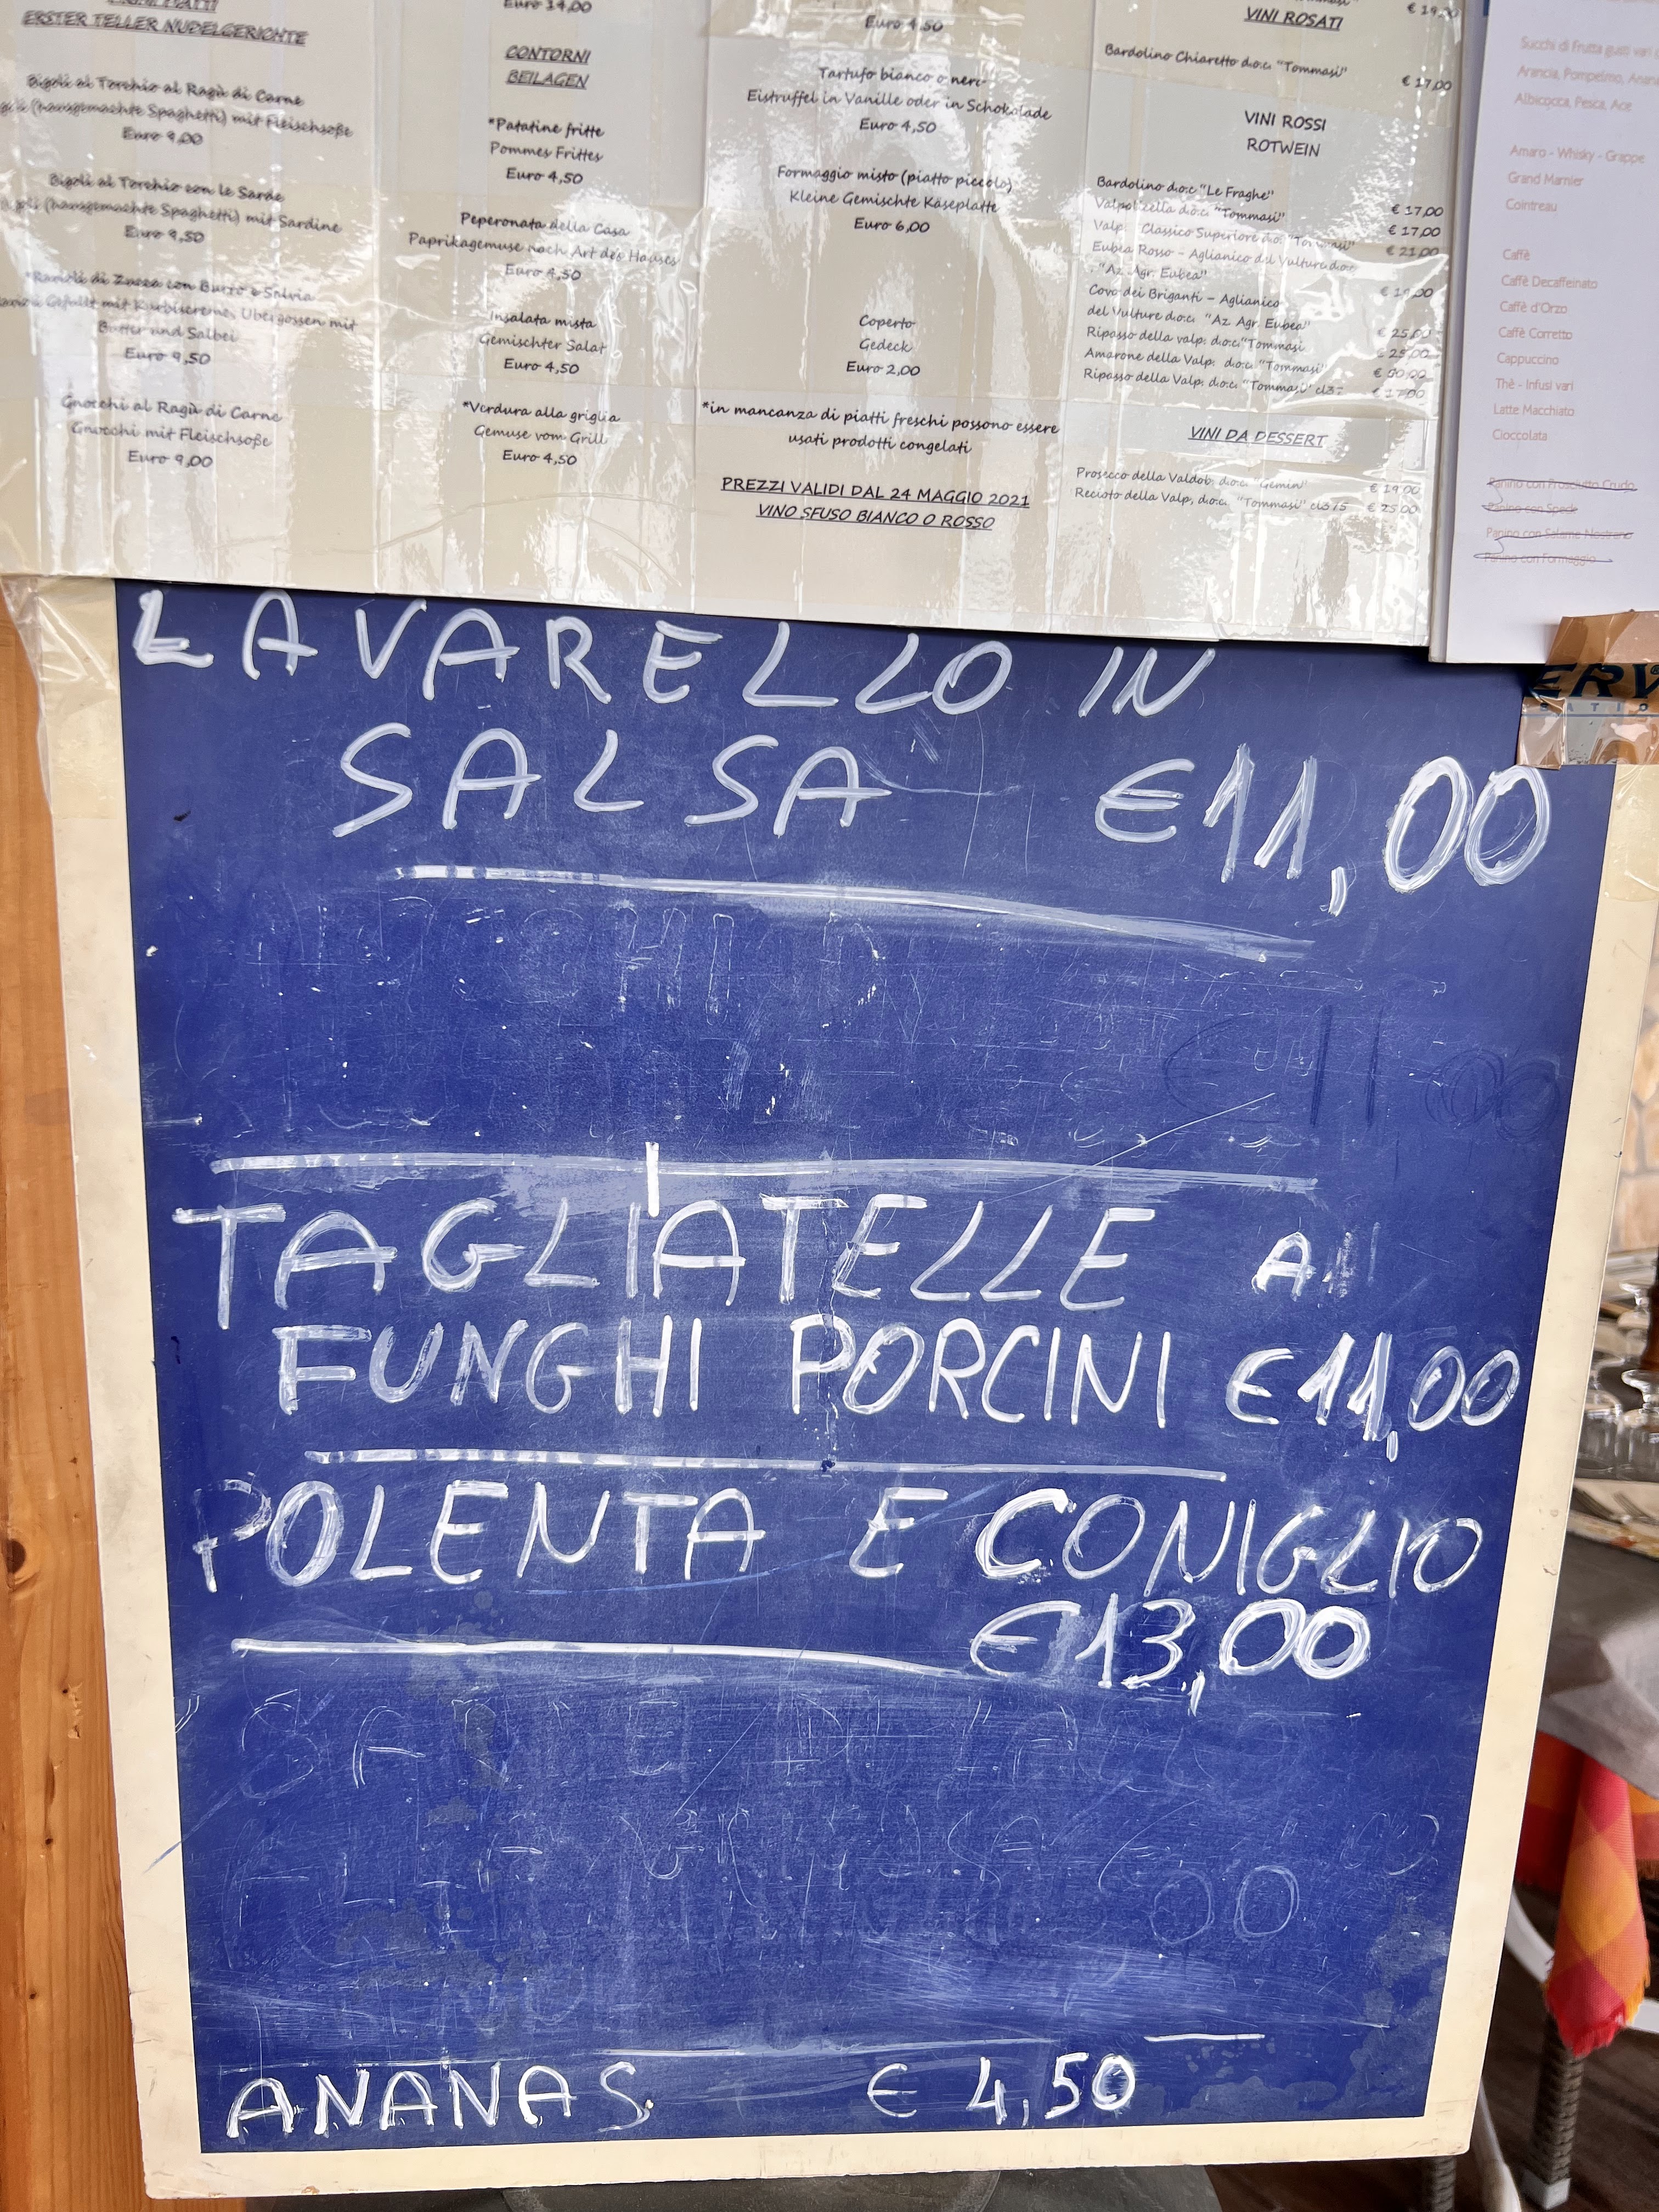 ERSTER TELLER NUDELGERICHTE
Bigoli al Torchio al Ragù di Carne
(hausgemachte Spaghetti) mit Fleischsoße
Euro 9,00
Bigoli al Torchio con le Sarde
(hausgemachte Spaghetti) mit Sardine
Euro 9,50
*Ravioli di Zucca con Burro e Salvia
Gefüllt mit Kürbiscreme, Übergossen mit
Butter und Salbei
Euro 9,50
Gnocchi al Ragù di Carne
Gnocchi mit Fleischsoße
Euro 9,00
Euro 14,00
CONTORNI
BEILAGEN
*Patatine fritte
Pommes Frittes
Euro 4,50
Peperonata della Casa
Paprikagemuse nach Art des Hauses
Euro 4,50
Insalata mista
Gemischter Salat
Euro 4,50
*Verdura alla griglia
Gemuse vom Grill
Euro 4,50
Euro 4,50
Tartufo bianco o nero
Eistruffel in Vanille oder in Schokolade
Euro 4,50
Formaggio misto (piatto piccolo)
Kleine Gemischte Käseplatte
Euro 6,00
Coperto
Gedeck
Euro 2,00
*in mancanza di piatti freschi possono essere
usati prodotti congelati
PREZZI VALIDI DAL 24 MAGGIO 2021
VINO SFUSO BIANCO O ROSSO
VINI ROSATI
Bardolino Chiaretto d.o.c. "Tommasi"
€ 17,00
VINI ROSSI
ROTWEIN
Bardolino d.o.c "Le Fraghe" € 17,00
Valpolicella d.o.c. "Tommasi" € 17,00
Valp. Classico Superiore d.o. "Tommasi" € 21,00
Eubea Rosso - Aglianico del Vulture d.o.c.
"Az. Agr. Eubea" € 19,00
Covo dei Briganti - Aglianico
del Vulture d.o.c. "Az. Agr. Eubea" € 25,00
Ripasso della valp. d.o.c. "Tommasi € 25,00
Amarone della Valp. d.o.c. "Tommasi"
Ripasso della Valp. d.o.c. "Tommasi" € 17,00
VINI DA DESSERT
Prosecco della Valdob. d.o.c. "Gemin" € 19,00
Recioto della Valp, d.o.c. "Tommasi" cl375 € 25,00
Succhi di Frutta gusti vari
Arancia, Pompelmo,
Albicocca, Pesca, Ace
Amaro - Whisky - Grappe
Grand Marnier
Cointreau
Caffè
Caffè Decaffeinato
Caffè d'Orzo
Caffè Corretto
Cappuccino
Thè - Infusi vari
Latte Macchiato
Cioccolata
Panino con Prosciutto Crudo
Panino con Speck
Panino con Salame Nostrano
Panino con Formaggio
LAVARELLO IN
SALSA €11,00
TAGLIATELLE AI
FUNGHI PORCINI €11,00
POLENTA E CONIGLIO
€13,00
ANANAS € 4,50